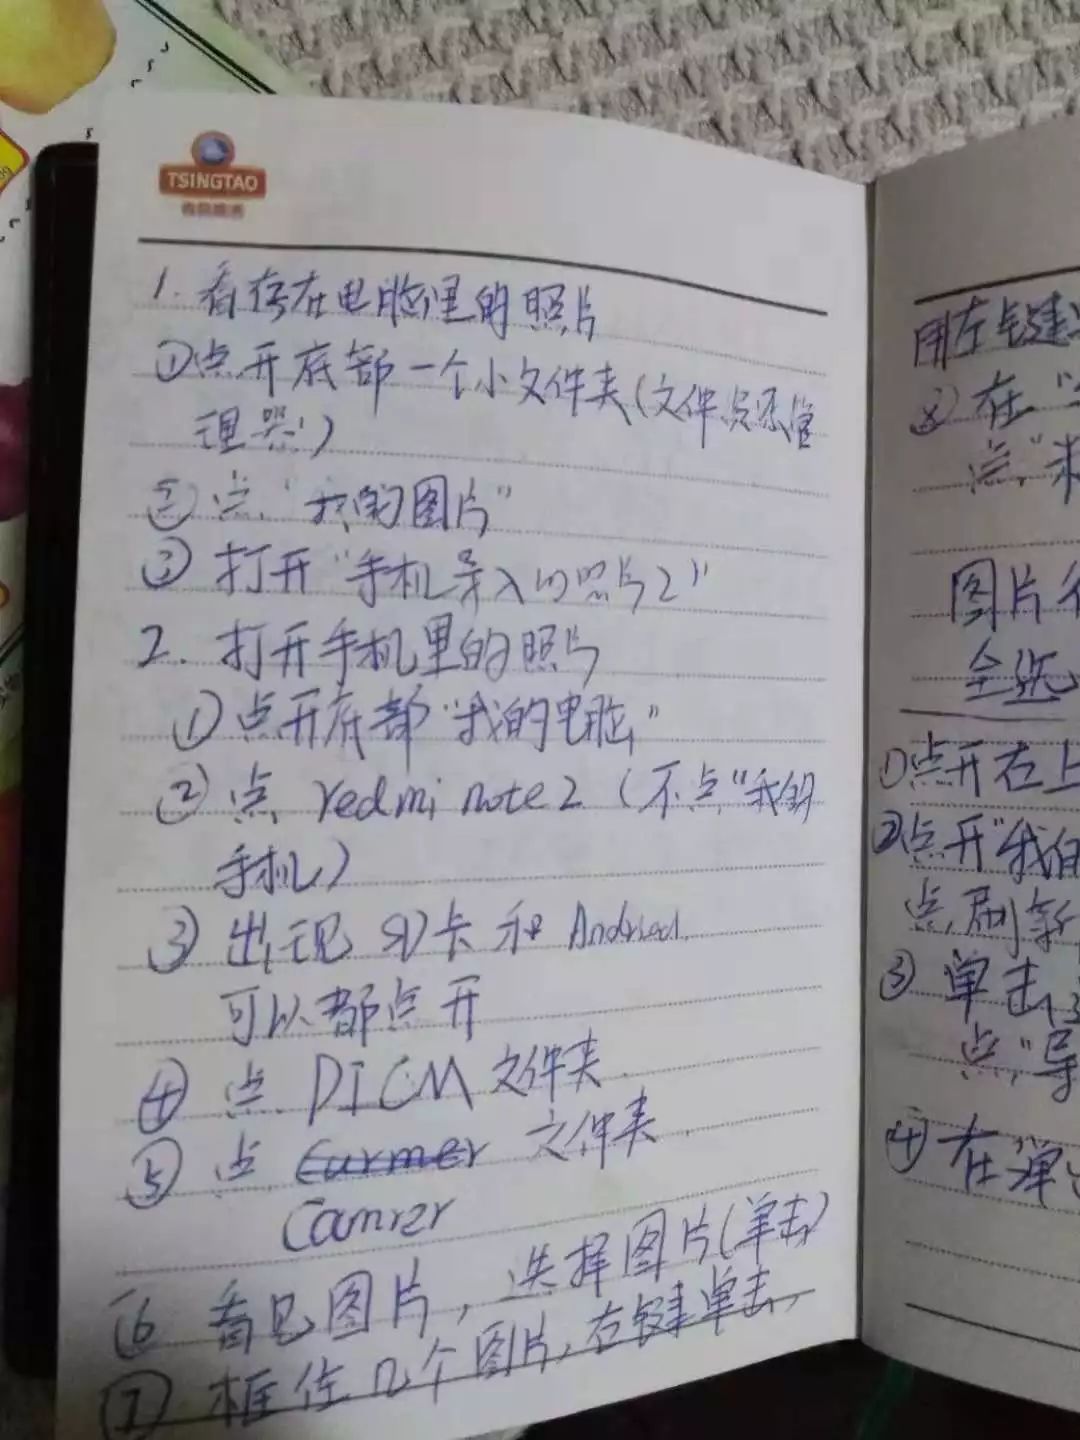 TSINGTAO
1. 看存在电脑里的照片
①点开底部一个小文件夹(文件资源管
理器)
②点"我的图片"
③打开"手机导入的照片2"
2. 打开手机里的照片
①点开底部"我的电脑"
②点 redmi note2 (不点"我的
手机)
③出现 SD卡和 Andriod.
可以都点开
④点 DICM 文件夹.
⑤点 Carmer 文件夹.
Camrer
⑥看见图片, 选择图片(单击)
⑦框住几个图片, 右键单击,
用左键
⑧在"
点"
图片
全选
①点开右上
②点开"我的
点刷新
③单击
点"导
④在弹出